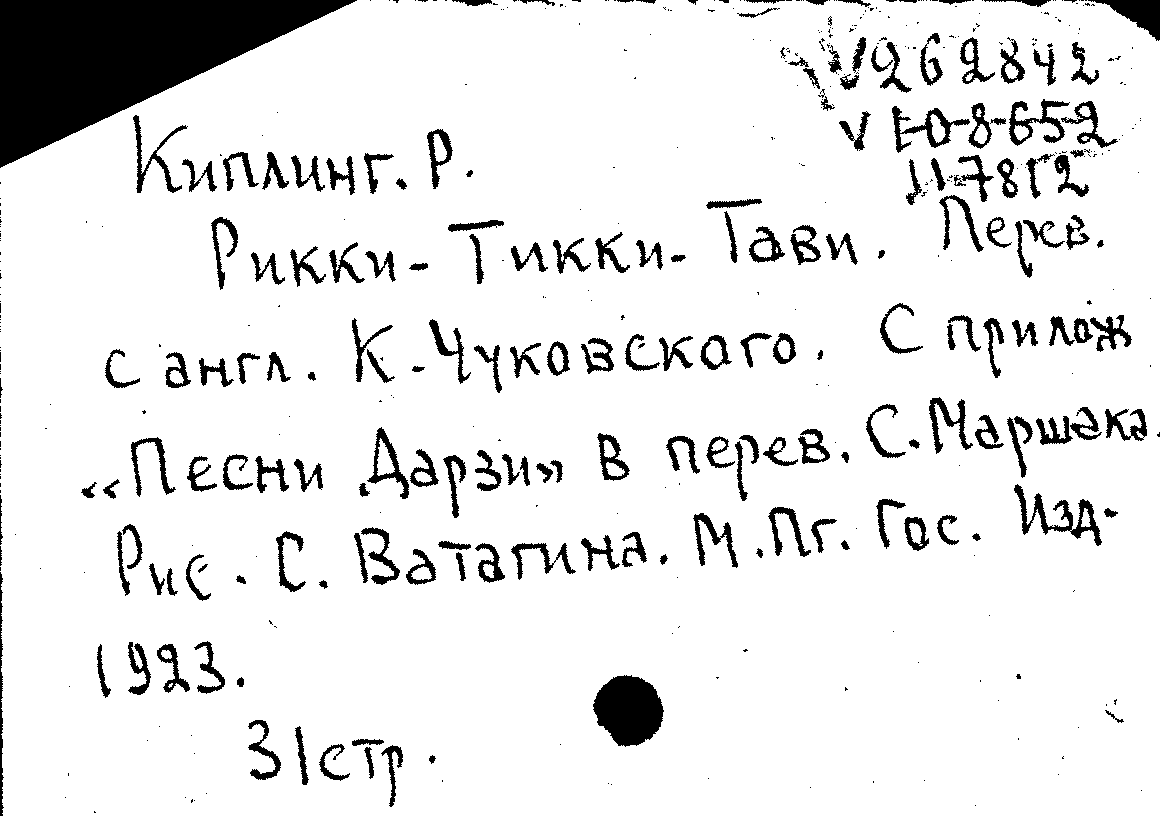 V262842
V 108652
117812
Киплинг. Р.
Рикки-Тикки-Тави. Перев.
с англ. К. Чуковского. С прилож
«Песни Дарзи» в перев. С. Маршака.
Рис. С. Ватагина. М.Пг. Гос. Изд.
1923.
31стр.